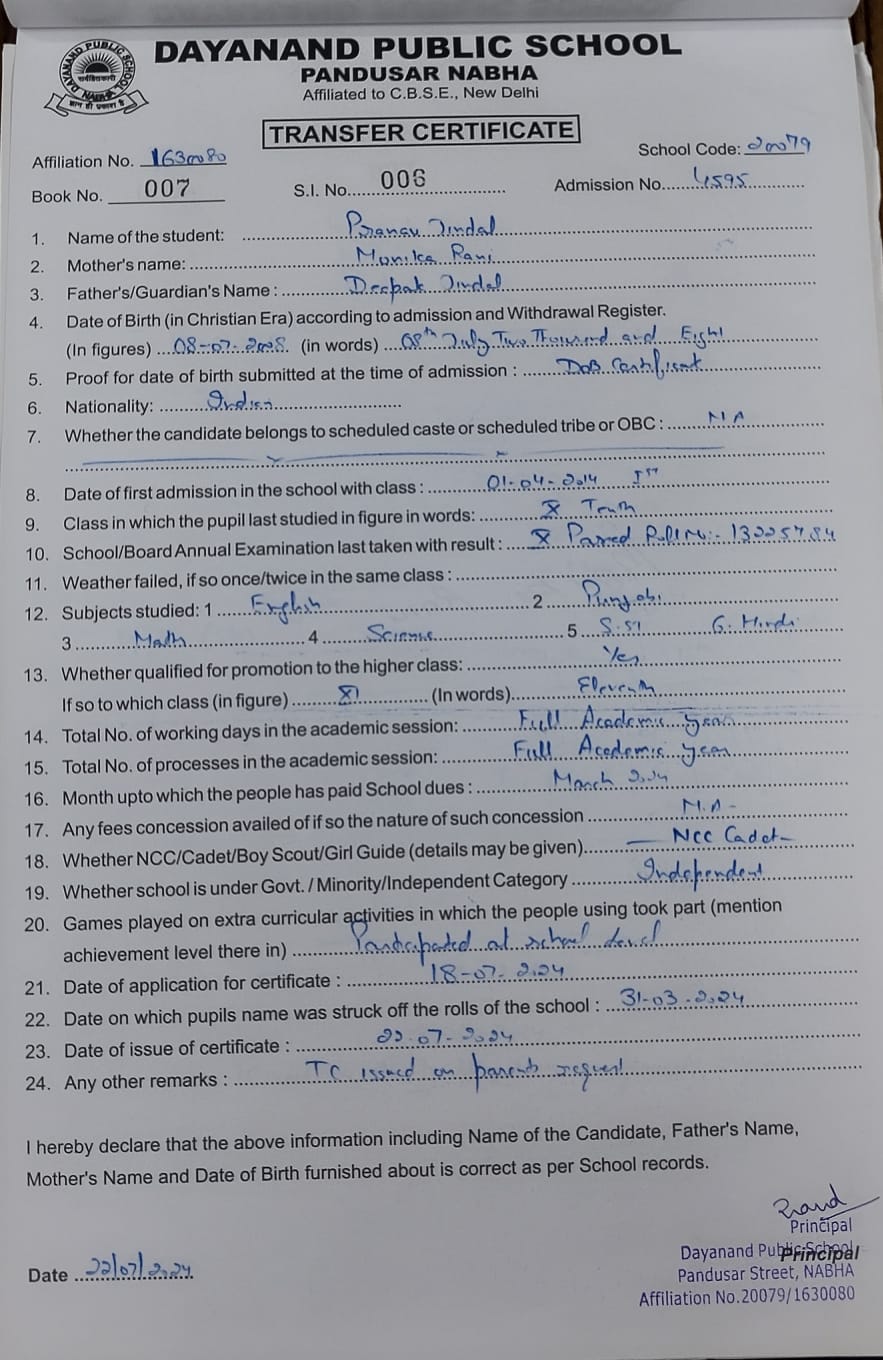 DAYANAND PUBLIC SCHOOL
PANDUSAR NABHA
Affiliated to C.B.S.E., New Delhi
DAYANAND PUBLIC SCHOOL
NABHA
TRANSFER CERTIFICATE
Affiliation No. 1630080 School Code: 20079
Book No. 007 S.I. No. 006 Admission No. 4595
1. Name of the student: Pranav Jindal
2. Mother's name: Monika Rani
3. Father's/Guardian's Name : Deepak Jindal
4. Date of Birth (in Christian Era) according to admission and Withdrawal Register.
(In figures) 08-07-2008 (in words) 08th July Two Thousand and Eight
5. Proof for date of birth submitted at the time of admission : DoB Certificate
6. Nationality: Indian
7. Whether the candidate belongs to scheduled caste or scheduled tribe or OBC : NA
8. Date of first admission in the school with class : 01-04-2014 Ist
9. Class in which the pupil last studied in figure in words: X Tenth
10. School/Board Annual Examination last taken with result : X Passed Roll No:- 13225784
11. Weather failed, if so once/twice in the same class :
12. Subjects studied: 1 English 2 Punjabi
3 Math 4 Science 5 S.St G. Hindi
13. Whether qualified for promotion to the higher class: Yes
If so to which class (in figure) XI (In words) Eleventh
14. Total No. of working days in the academic session: Full Academic year
15. Total No. of processes in the academic session: Full Academic year
16. Month upto which the people has paid School dues : March 2024
17. Any fees concession availed of if so the nature of such concession N.A -
18. Whether NCC/Cadet/Boy Scout/Girl Guide (details may be given) — NCC Cadet
19. Whether school is under Govt. / Minority/Independent Category Independent
20. Games played on extra curricular activities in which the people using took part (mention
achievement level there in) Participated at school level
21. Date of application for certificate : 18-07-2024
22. Date on which pupils name was struck off the rolls of the school : 31-03-2024
23. Date of issue of certificate : 22-07-2024
24. Any other remarks : TC issued on parents request
I hereby declare that the above information including Name of the Candidate, Father's Name,
Mother's Name and Date of Birth furnished about is correct as per School records.
Principal
Dayanand Public School
Principal
Pandusar Street, NABHA
Date 22/07/2024
Affiliation No.20079/1630080